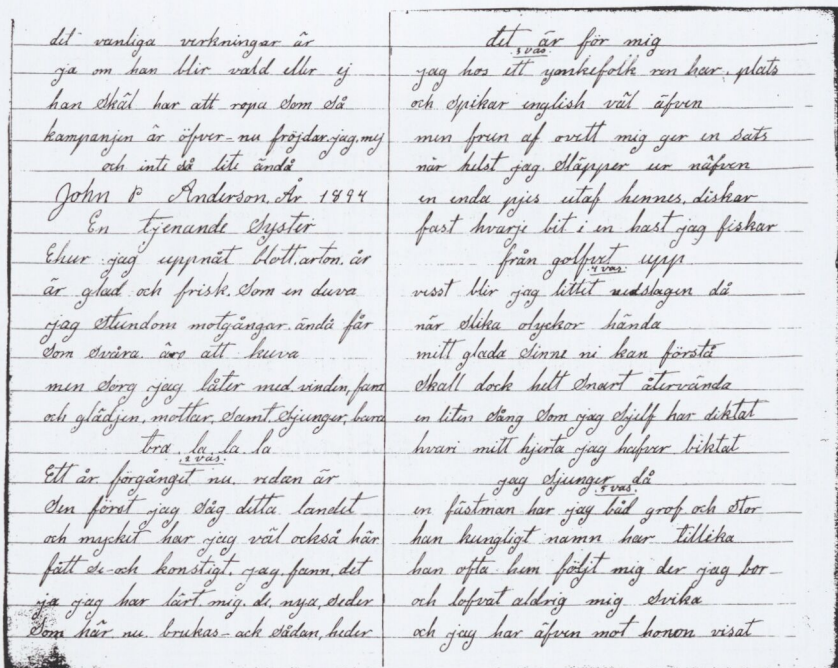 det vanliga verkningar är
ja om han blir vald eller ej
han skäl har att ropa som så
kampanjen är öfver-nu fröjdar jag mej
och inte så lite ändå
John P Anderson. År 1894
En tjenande syster
Ehur jag uppnåt blott arton år
är glad och frisk. som en duva
jag stundom motgångar ändå får
som svåra äro att kuva
men sorg jag låter med vinden, fara
och glädjen, mottar, samt, sjunger, bara
tra la la la
2 vas.
Ett år förgånget nu redan är
sen först jag såg detta landet
och mycket har jag väl också här
fått se-och konstigt, jag fann, det
ja jag har lärt mig de, nya, seder
som här nu brukas-ack sådan, heder
det är för mig
3 vas.
jag hos ett yankefolk ren har, plats
och spikar english väl äfven
men frun af ovett mig ger en sats
när helst jag släpper ur näfven
en enda pjes utaf hennes, diskar
fast hvarje bit i en hast jag fiskar
från golfvet upp
4 vas.
visst blir jag littet nedslagen då
när slika olyckor hända
mitt glada sinne ni kan förstå
skall dock helt snart återvända
en liten sång som jag sjelf har diktat
hvari mitt hjerta jag hafver biktat
jag sjunger då
5 vas.
en fästman har jag båd grof och stor
han kungligt namn har tillika
han ofta hem följt mig der jag bor
och lofvat aldrig mig svika
och jag har äfven mot honon visat